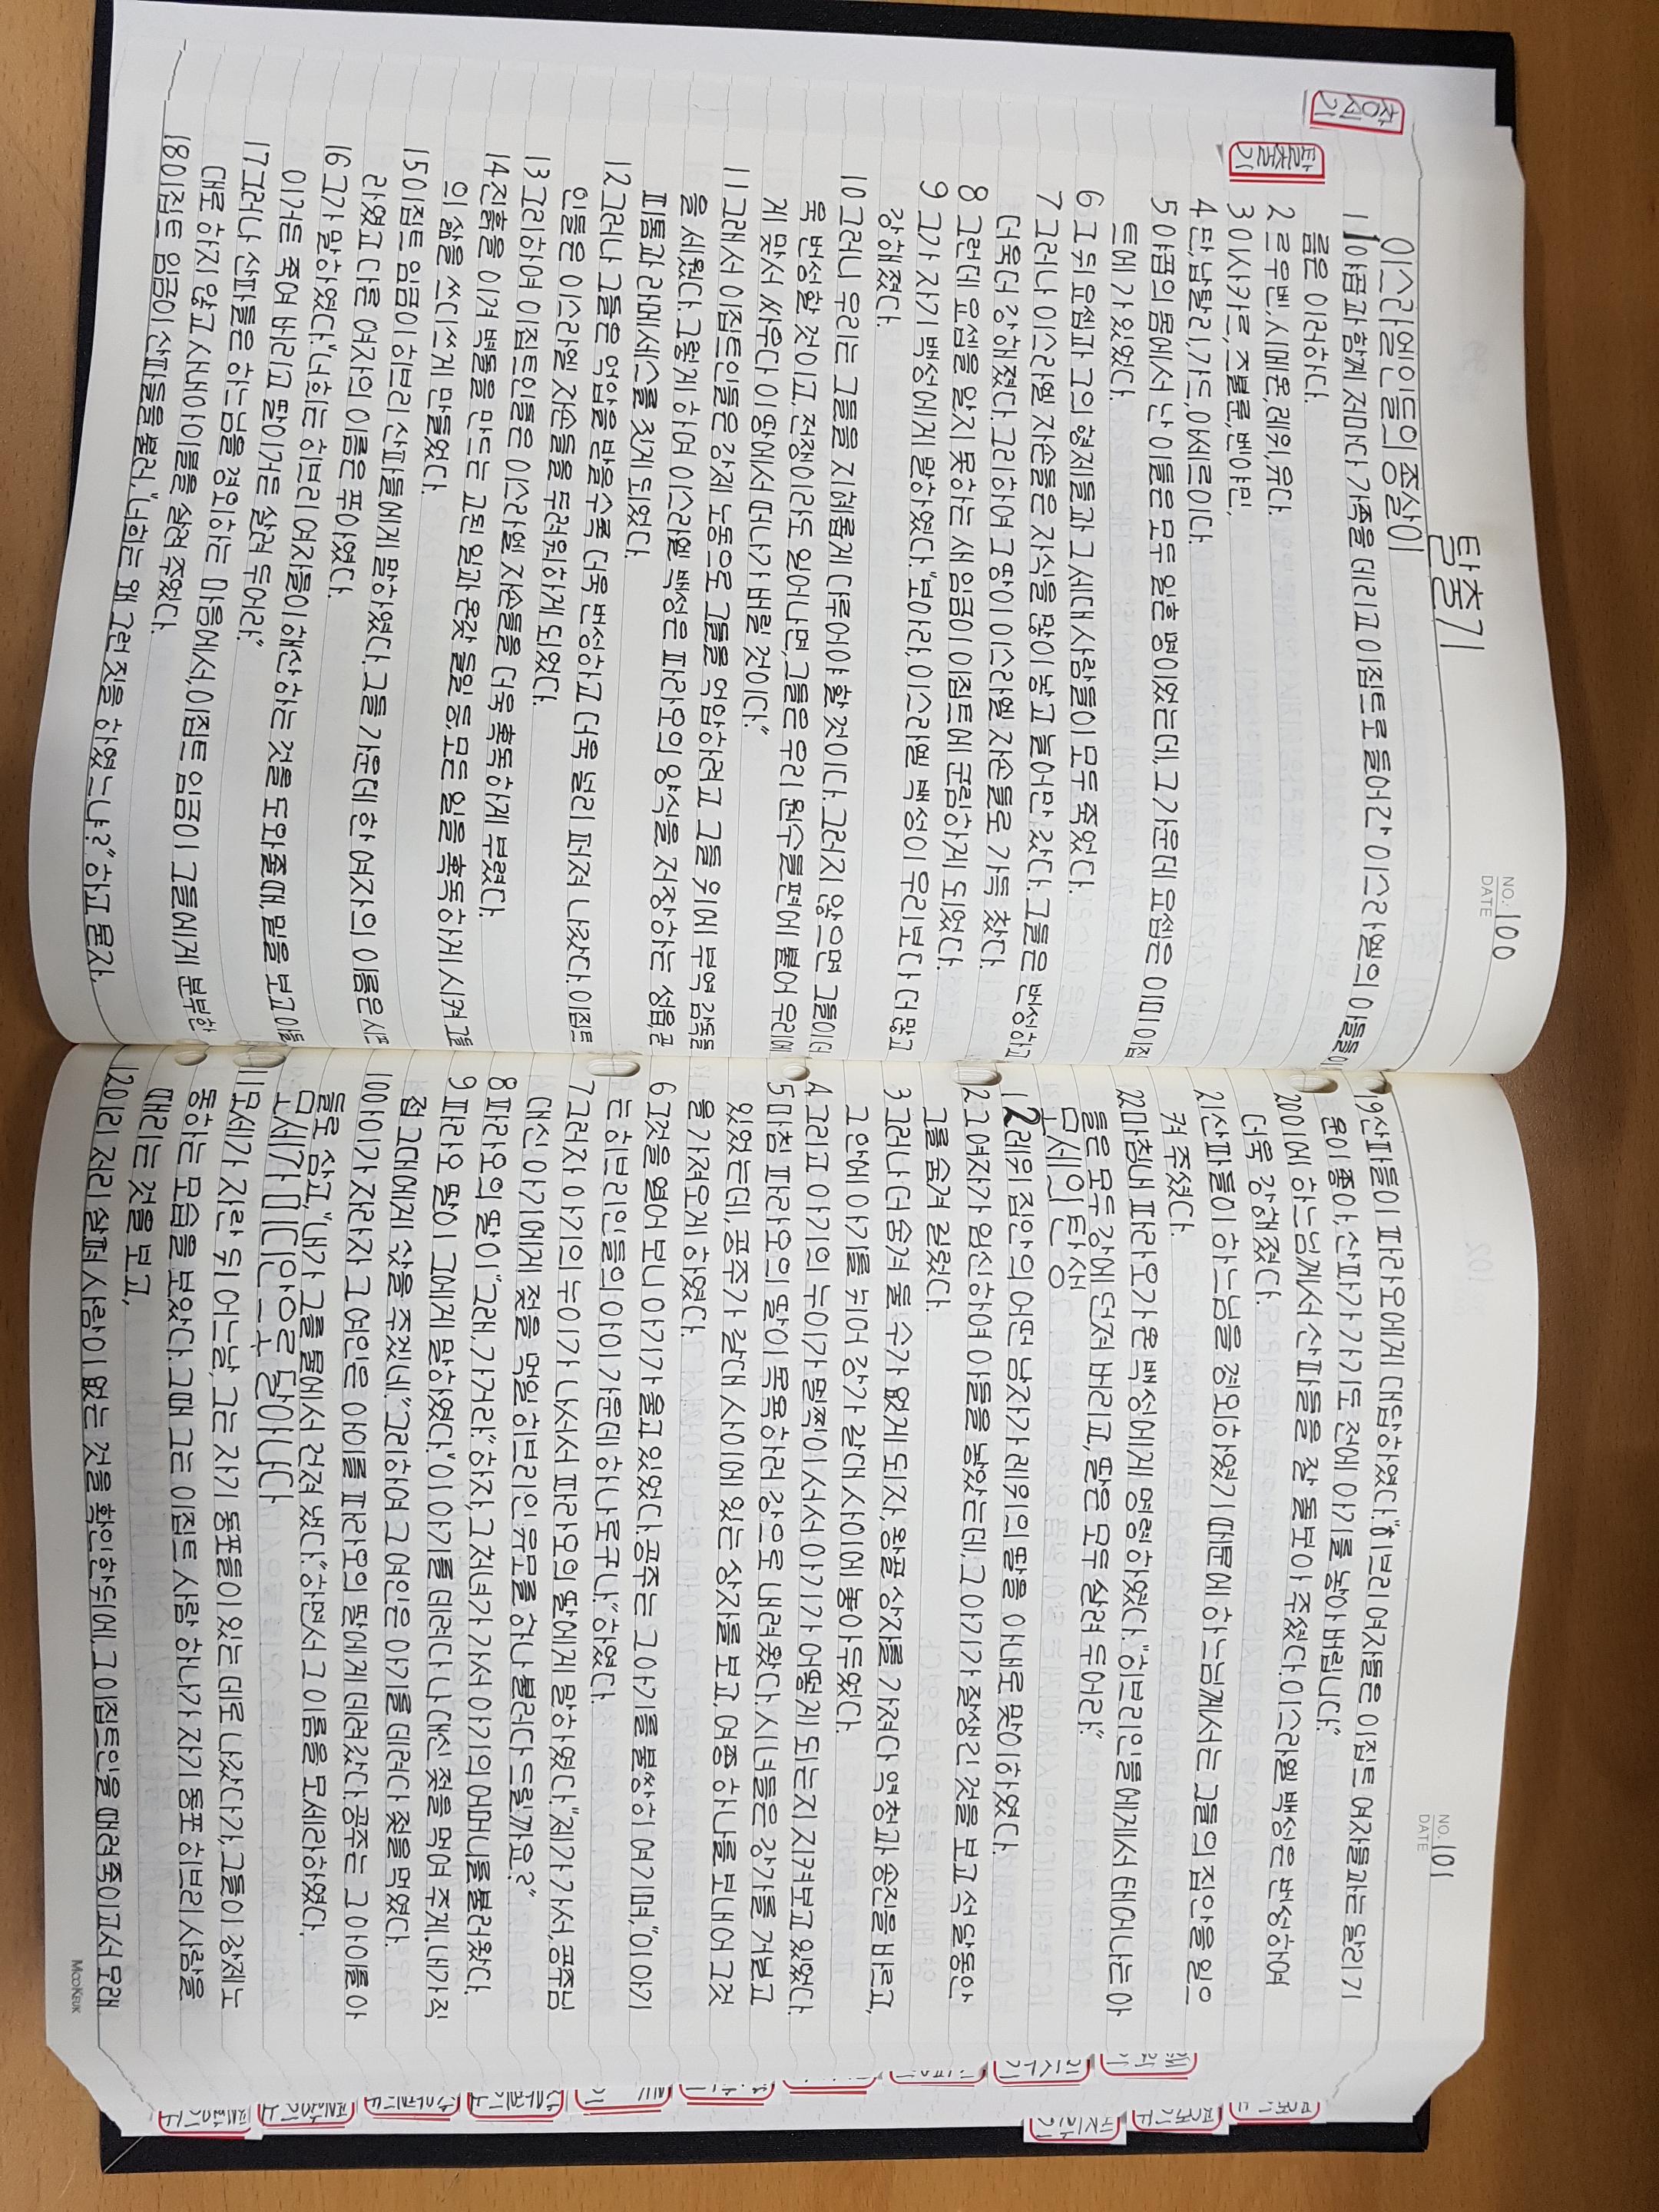 창세기
탈출기
NO. 100
DATE
탈출기
이스라엘인들의 종살이
1 1야곱과 함께 저마다 가족을 데리고 이집트로 들어간 이스라엘의 아들들이
름은 이러하다.
2 르우벤, 시메온, 레위, 유다.
3 이사카르, 즈불룬, 벤야민,
4 단, 납탈리, 가드, 아세르이다.
5 야곱의 몸에서 난 이들은 모두 일흔 명이었는데, 그 가운데 요셉은 이미 이집
트에 가 있었다.
6 그 뒤 요셉과 그의 형제들과 그 세대 사람들이 모두 죽었다.
7 그러나 이스라엘 자손들은 자식을 많이 낳고 늘어만 갔다. 그들은 번성하고
더욱더 강해졌다. 그리하여 그 땅이 이스라엘 자손들로 가득 찼다.
8 그런데 요셉을 알지 못하는 새 임금이 이집트에 군림하게 되었다.
9 그가 자기 백성에게 말하였다. "보아라, 이스라엘 백성이 우리보다 더 많고
강해졌다.
10 그러니 우리는 그들을 지혜롭게 다루어야 할 것이다. 그러지 않으면 그들이 더
욱 번성할 것이고, 전쟁이라도 일어나면, 그들은 우리 원수들편에 붙어 우리에
게 맞서 싸우다 이 땅에서 떠나가 버릴 것이다."
11 그래서 이집트인들은 강제 노동으로 그들을 억압하려고 그들 위에 부역 감독들
을 세웠다. 그렇게 하여 이스라엘 백성은 파라오의 양식을 저장하는 성읍, 곧
피톰과 라메세스를 짓게 되었다.
12 그러나 그들은 억압을 받을수록 더욱 번성하고 더욱 널리 퍼져 나갔다. 이집트
인들은 이스라엘 자손들을 두려워하게 되었다.
13 그리하여 이집트인들은 이스라엘 자손들을 더욱 혹독하게 부렸다.
14 진흙을 이겨 벽돌을 만드는 고된 일과 온갖 들일 등, 모든 일을 혹독하게 시켜 그들
의 삶을 쓰디쓰게 만들었다.
15 이집트 임금이 히브리 산파들에게 말하였다. 그들 가운데 한 여자의 이름은 시프
라였고 다른 여자의 이름은 푸아였다.
16 그가 말하였다. "너희는 히브리 여자들이 해산하는 것을 도와줄때, 밑을 보고 아들
이거든 죽여 버리고 딸이거든 살려 두어라."
17 그러나 산파들은 하느님을 경외하는 마음에서, 이집트 임금이 그들에게 분부한
대로 하지 않고 사내아이들을 살려 주었다.
18 이집트 임금이 산파들을 불러, "너희는 왜 그런 짓을 하였느냐?" 하고 묻자,
NO. 101
DATE
19 산파들이 파라오에게 대답하였다. "히브리 여자들은 이집트 여자들과는 달리 기
운이 좋아, 산파가 가기도 전에 아기를 낳아 버립니다."
20 이에 하느님께서 산파들을 잘 돌보아 주셨다. 이스라엘 백성은 번성하여
더욱 강해졌다.
21 산파들이 하느님을 경외하였기 때문에 하느님께서는 그들의 집안을 일으
켜 주셨다.
22 마침내 파라오가 온 백성에게 명령하였다. "히브리인들에게서 태어나는 아
들은 모두 강에 던져 버리고, 딸은 모두 살려 두어라."
모세의 탄생
1 2 레위 집안의 어떤 남자가 레위의 딸을 아내로 맞이하였다.
2 그 여자가 임신하여 아들을 낳았는데, 그 아기가 잘생긴 것을 보고 석 달 동안
그를 숨겨 길렀다.
3 그러나 더 숨겨 둘 수가 없게 되자, 왕골 상자를 가져다 역청과 송진을 바르고,
그 안에 아기를 뉘어 강가 갈대 사이에 놓아두었다.
4 그리고 아기의 누이가 멀찍이 서서 아기가 어떻게 되는지 지켜보고 있었다.
5 마침 파라오의 딸이 목욕하러 강으로 내려왔다. 시녀들은 강가를 거닐고
있었는데, 공주가 갈대 사이에 있는 상자를 보고, 여종 하나를 보내어 그것
을 가져오게 하였다.
6 그것을 열어 보니 아기가 울고 있었다. 공주는 그 아기를 불쌍히 여기며, "이 아기
는 히브리인들의 아이 가운데 하나로구나." 하였다.
7 그러자 아기의 누이가 나서서 파라오의 딸에게 말하였다. "제가 가서, 공주님
대신 아기에게 젖을 먹일 히브리인 유모를 하나 불러다 드릴까요?"
8 파라오의 딸이 "그래, 가거라." 하자, 그 처녀가 가서 아기의 어머니를 불러왔다.
9 파라오 딸이 그에게 말하였다. "이 아기를 데려다 나 대신 젖을 먹여 주게. 내가 직
접 그대에게 삯을 주겠네." 그리하여 그 여인은 아기를 데려다 젖을 먹였다.
10 아이가 자라자 그 여인은 아이를 파라오의 딸에게 데려갔다. 공주는 그 아이를 아
들로 삼고, "내가 그를 물에서 건져 냈다." 하면서 그 이름을 모세라하였다.
모세가 미디안으로 달아나다
11 모세가 자란 뒤 어느 날, 그는 자기 동포들이 있는 데로 나갔다가, 그들이 강제노
동하는 모습을 보았다. 그때 그는 이집트 사람 하나가 자기 동포 히브리 사람을
때리는 것을 보고,
12 이리저리 살펴 사람이 없는 것을 확인한 뒤에, 그 이집트인을 때려죽이고서 모래
MOOKEUK